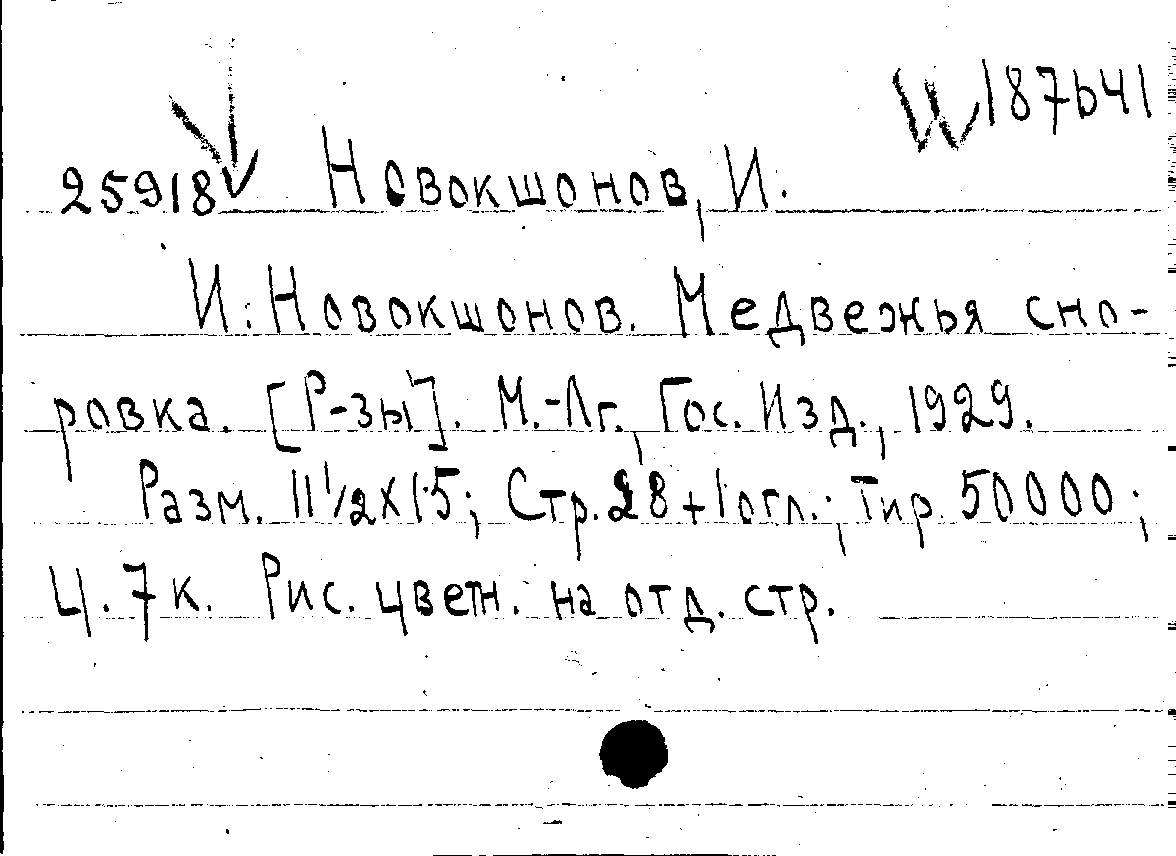 W 187641
25918 Новокшонов, И.
И. Новокшонов. Медвежья сно-
ровка. [Р-зы]. М.-Лг., Гос. Изд., 1929.
Разм. 11 1/2х15; Стр. 28+1 огл.; Тир. 50000;
Ц. 7 к. Рис. цветн. на отд. стр.